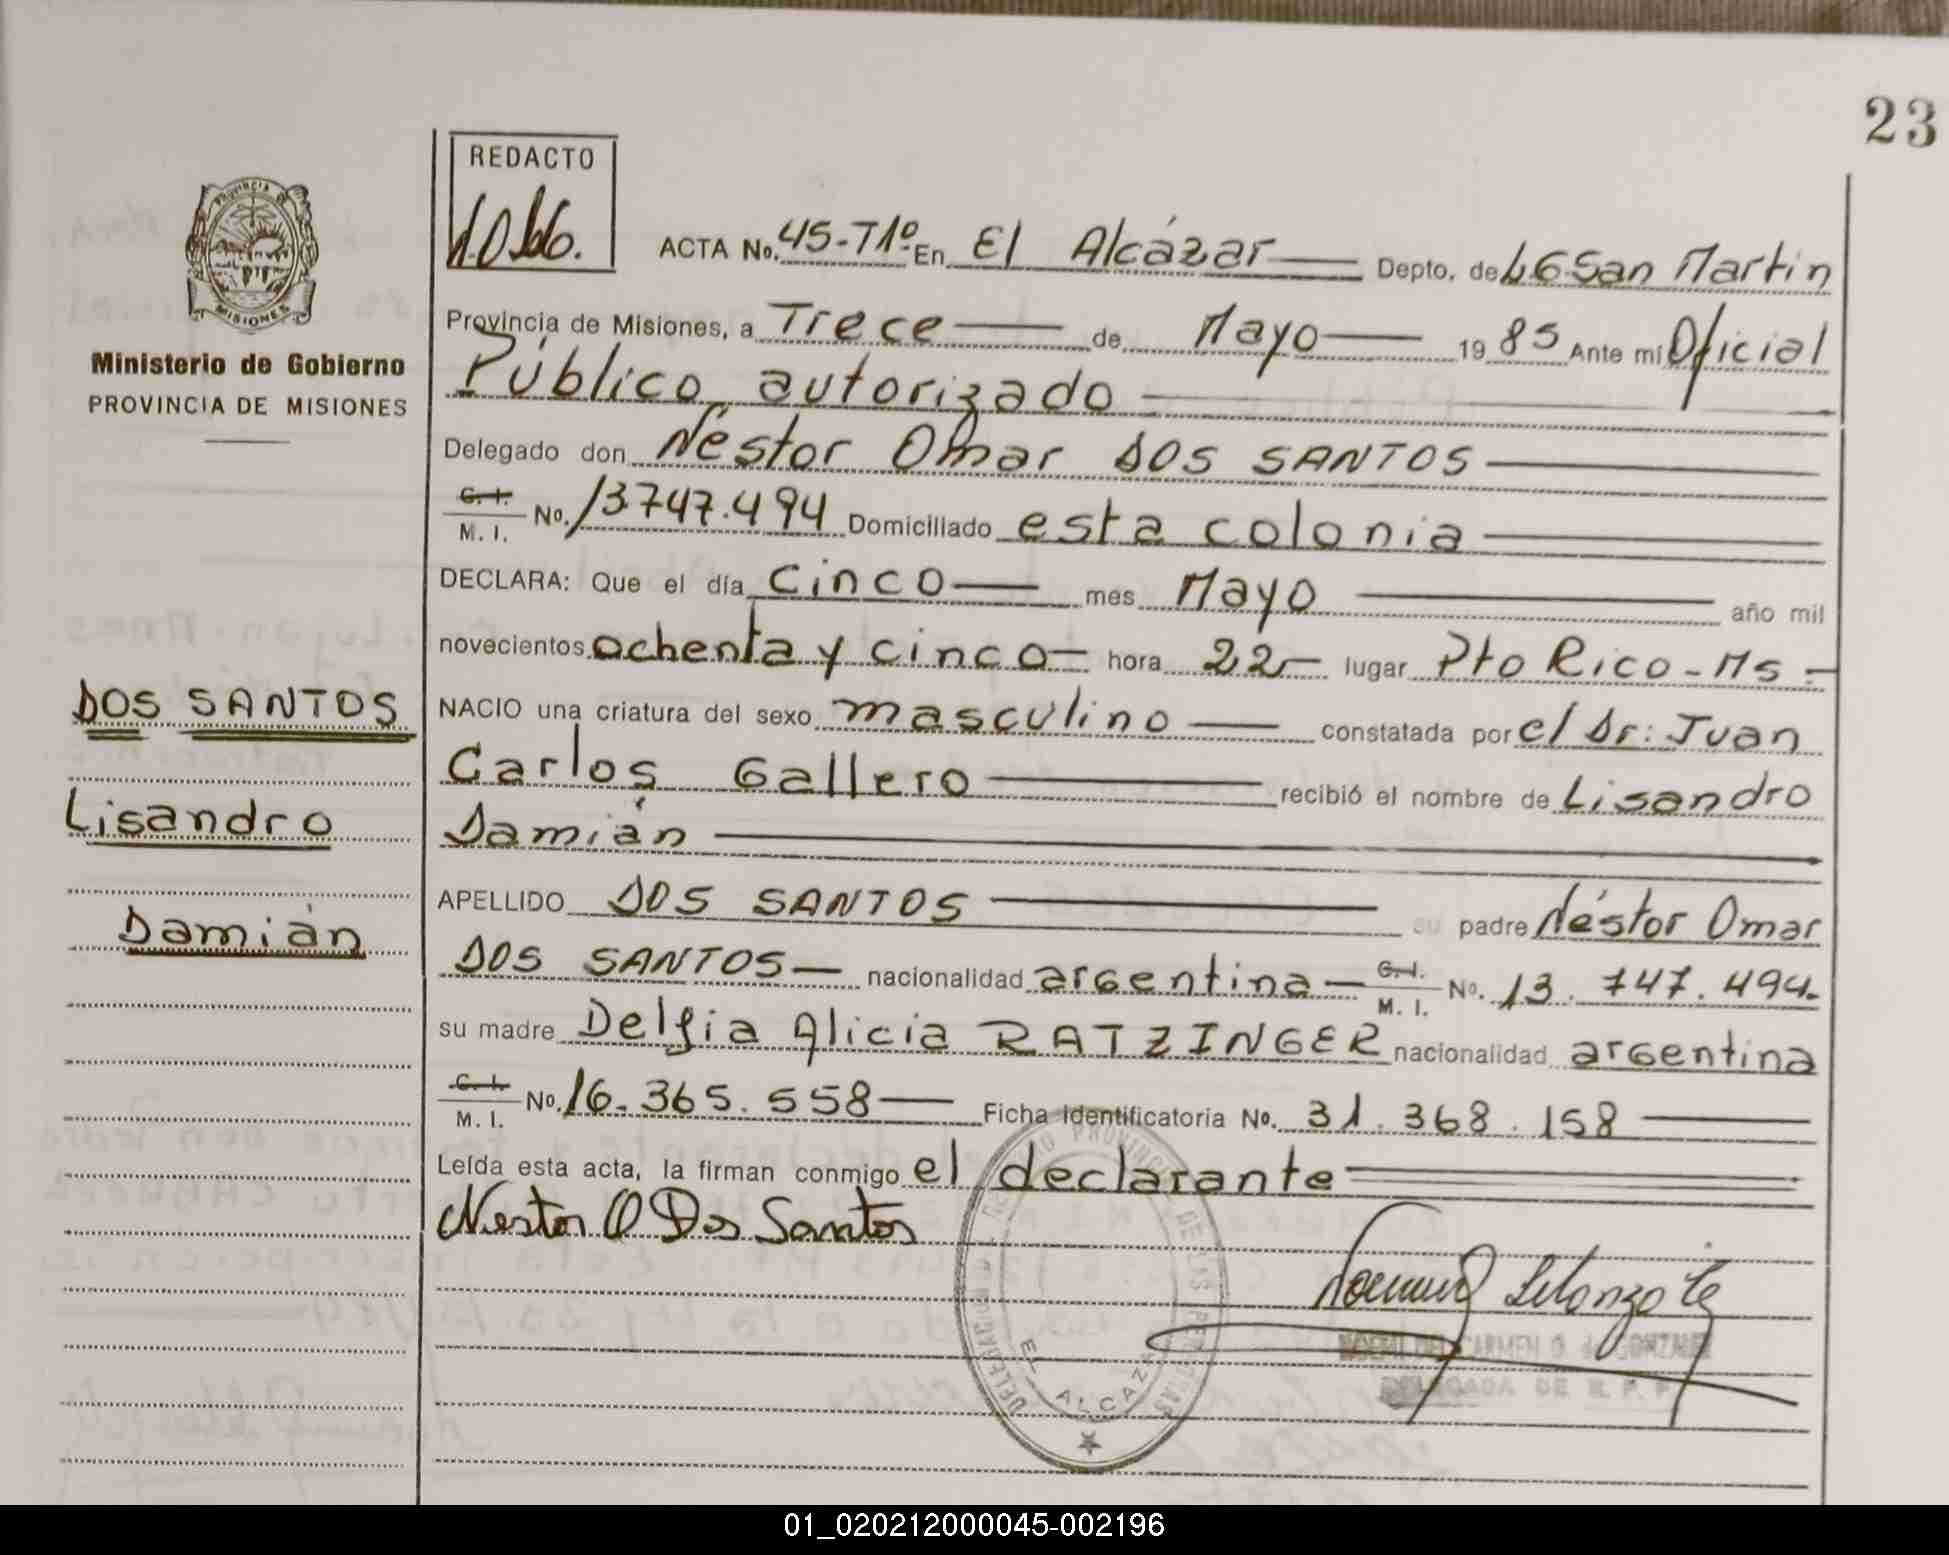 23
REDACTO
ACTA No. 45-T1º En El Alcázar Depto. de L G San Martin
Provincia de Misiones, a Trece de Mayo 1985 Ante mi Oficial
Público autorizado
Delegado don Néstor Omar DOS SANTOS
C. I. / M. I. No. 13747.494 Domiciliado esta colonia
DECLARA: Que el día cinco mes Mayo año mil
novecientos ochenta y cinco hora 22 lugar Pto Rico - Ms -
NACIO una criatura del sexo masculino constatada por el Dr: Juan
Carlos Gallero recibió el nombre de Lisandro
Damián
APELLIDO DOS SANTOS su padre Néstor Omar
DOS SANTOS nacionalidad argentina C. I. / M. I. No. 13.747.494.
su madre Delfia Alicia RATZINGER nacionalidad argentina
C. I. / M. I. No. 16.365.558 Ficha identificatoria No. 31.368.158
Leída esta acta, la firman conmigo el declarante
Nestor O Dos Santos
PROVINCIA DE MISIONES
Ministerio de Gobierno
PROVINCIA DE MISIONES
DOS SANTOS
Lisandro
Damián
EL ALCAZAR
DELEGADA DE R. P. P.
01_020212000045-002196